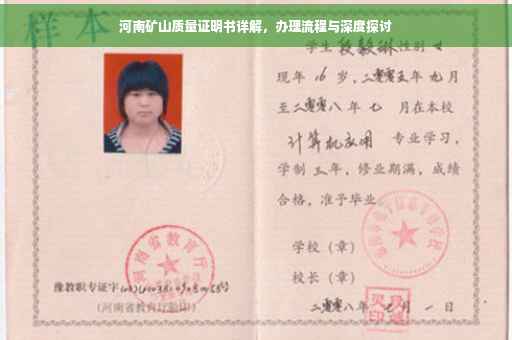 河南矿山质量证明书详解，办理流程与深度探讨
样本
学生 段毅琳 性别 女
现年 16 岁，二零零五年 九 月
至二零零八 年 七 月在本校
计算机应用 专业学习，
学制 三 年，修业期满，成绩
合格，准予毕业
学校（章）
校长（章）
二零零八年 月 一 日
河南省教育厅
豫教职专证字
（河南省教育厅验印）